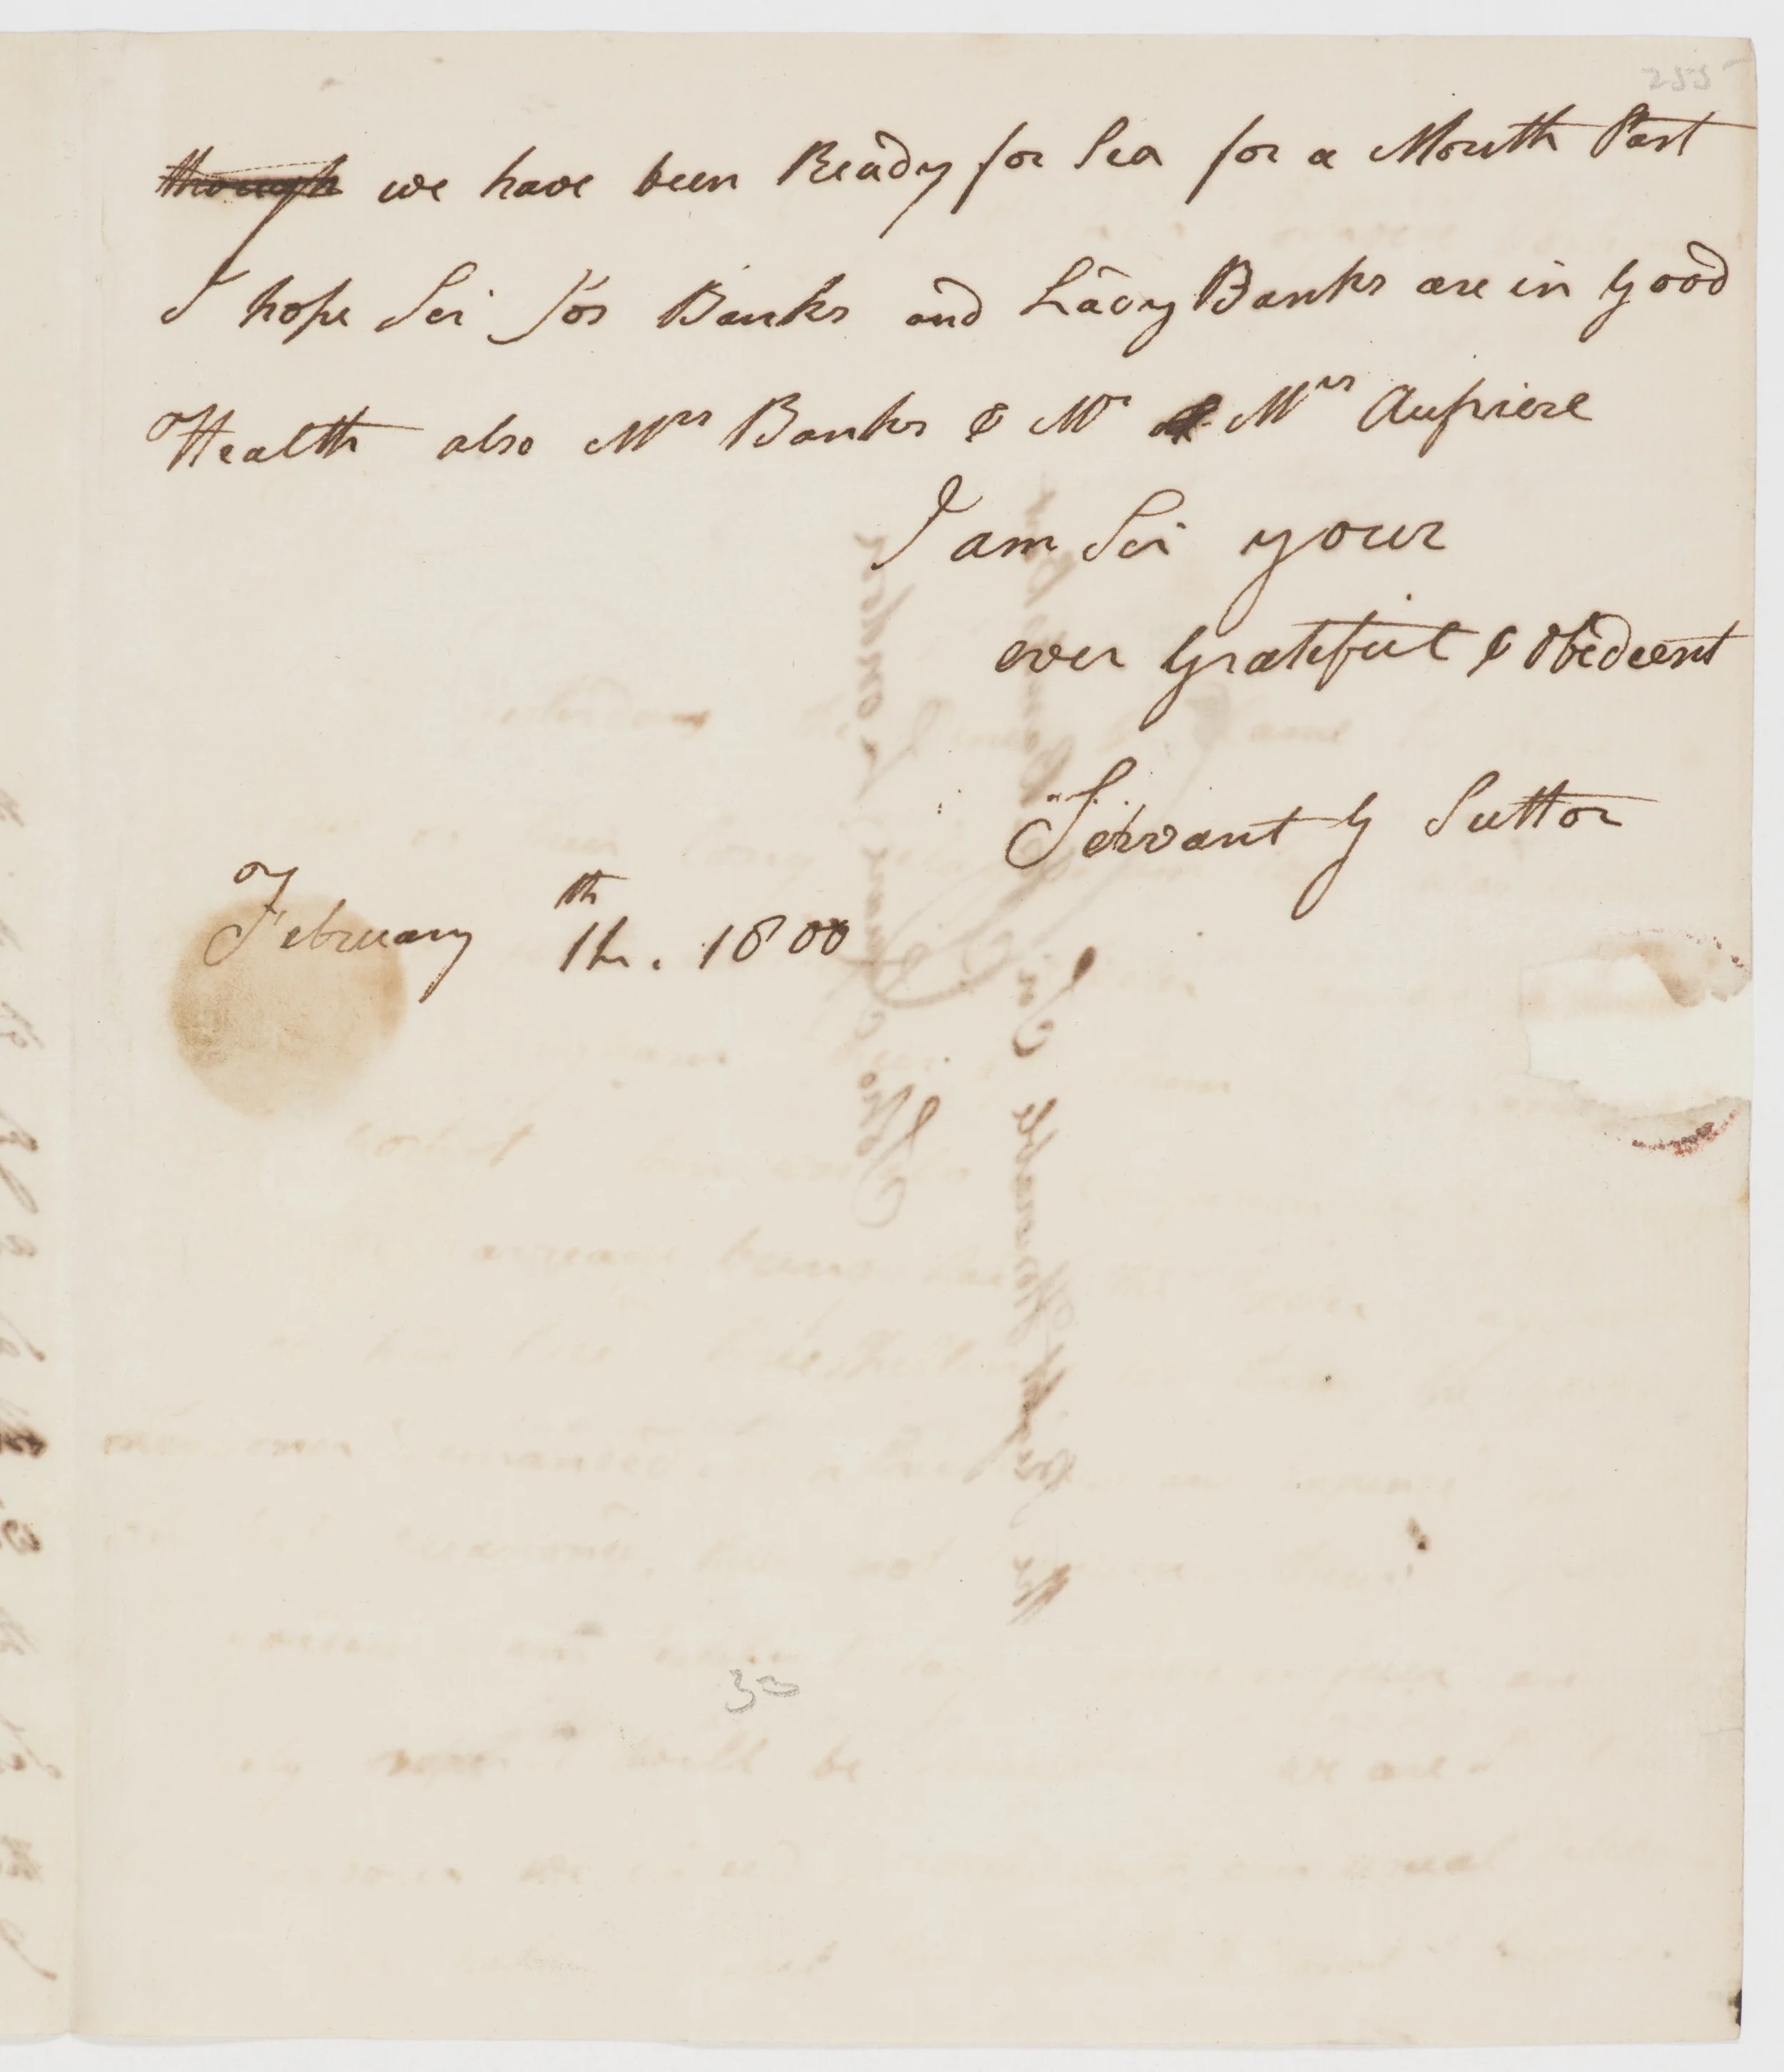 255
~~though~~ we have been Ready for Sea for a Month Past
I hope Sir Jos Banks and Lady Banks are in good
Health also Mrs Banks & Mr & Mrs Aufrere
I am Sir your
ever Grateful & Obedient
Servant G Suttor
February th 1800
33